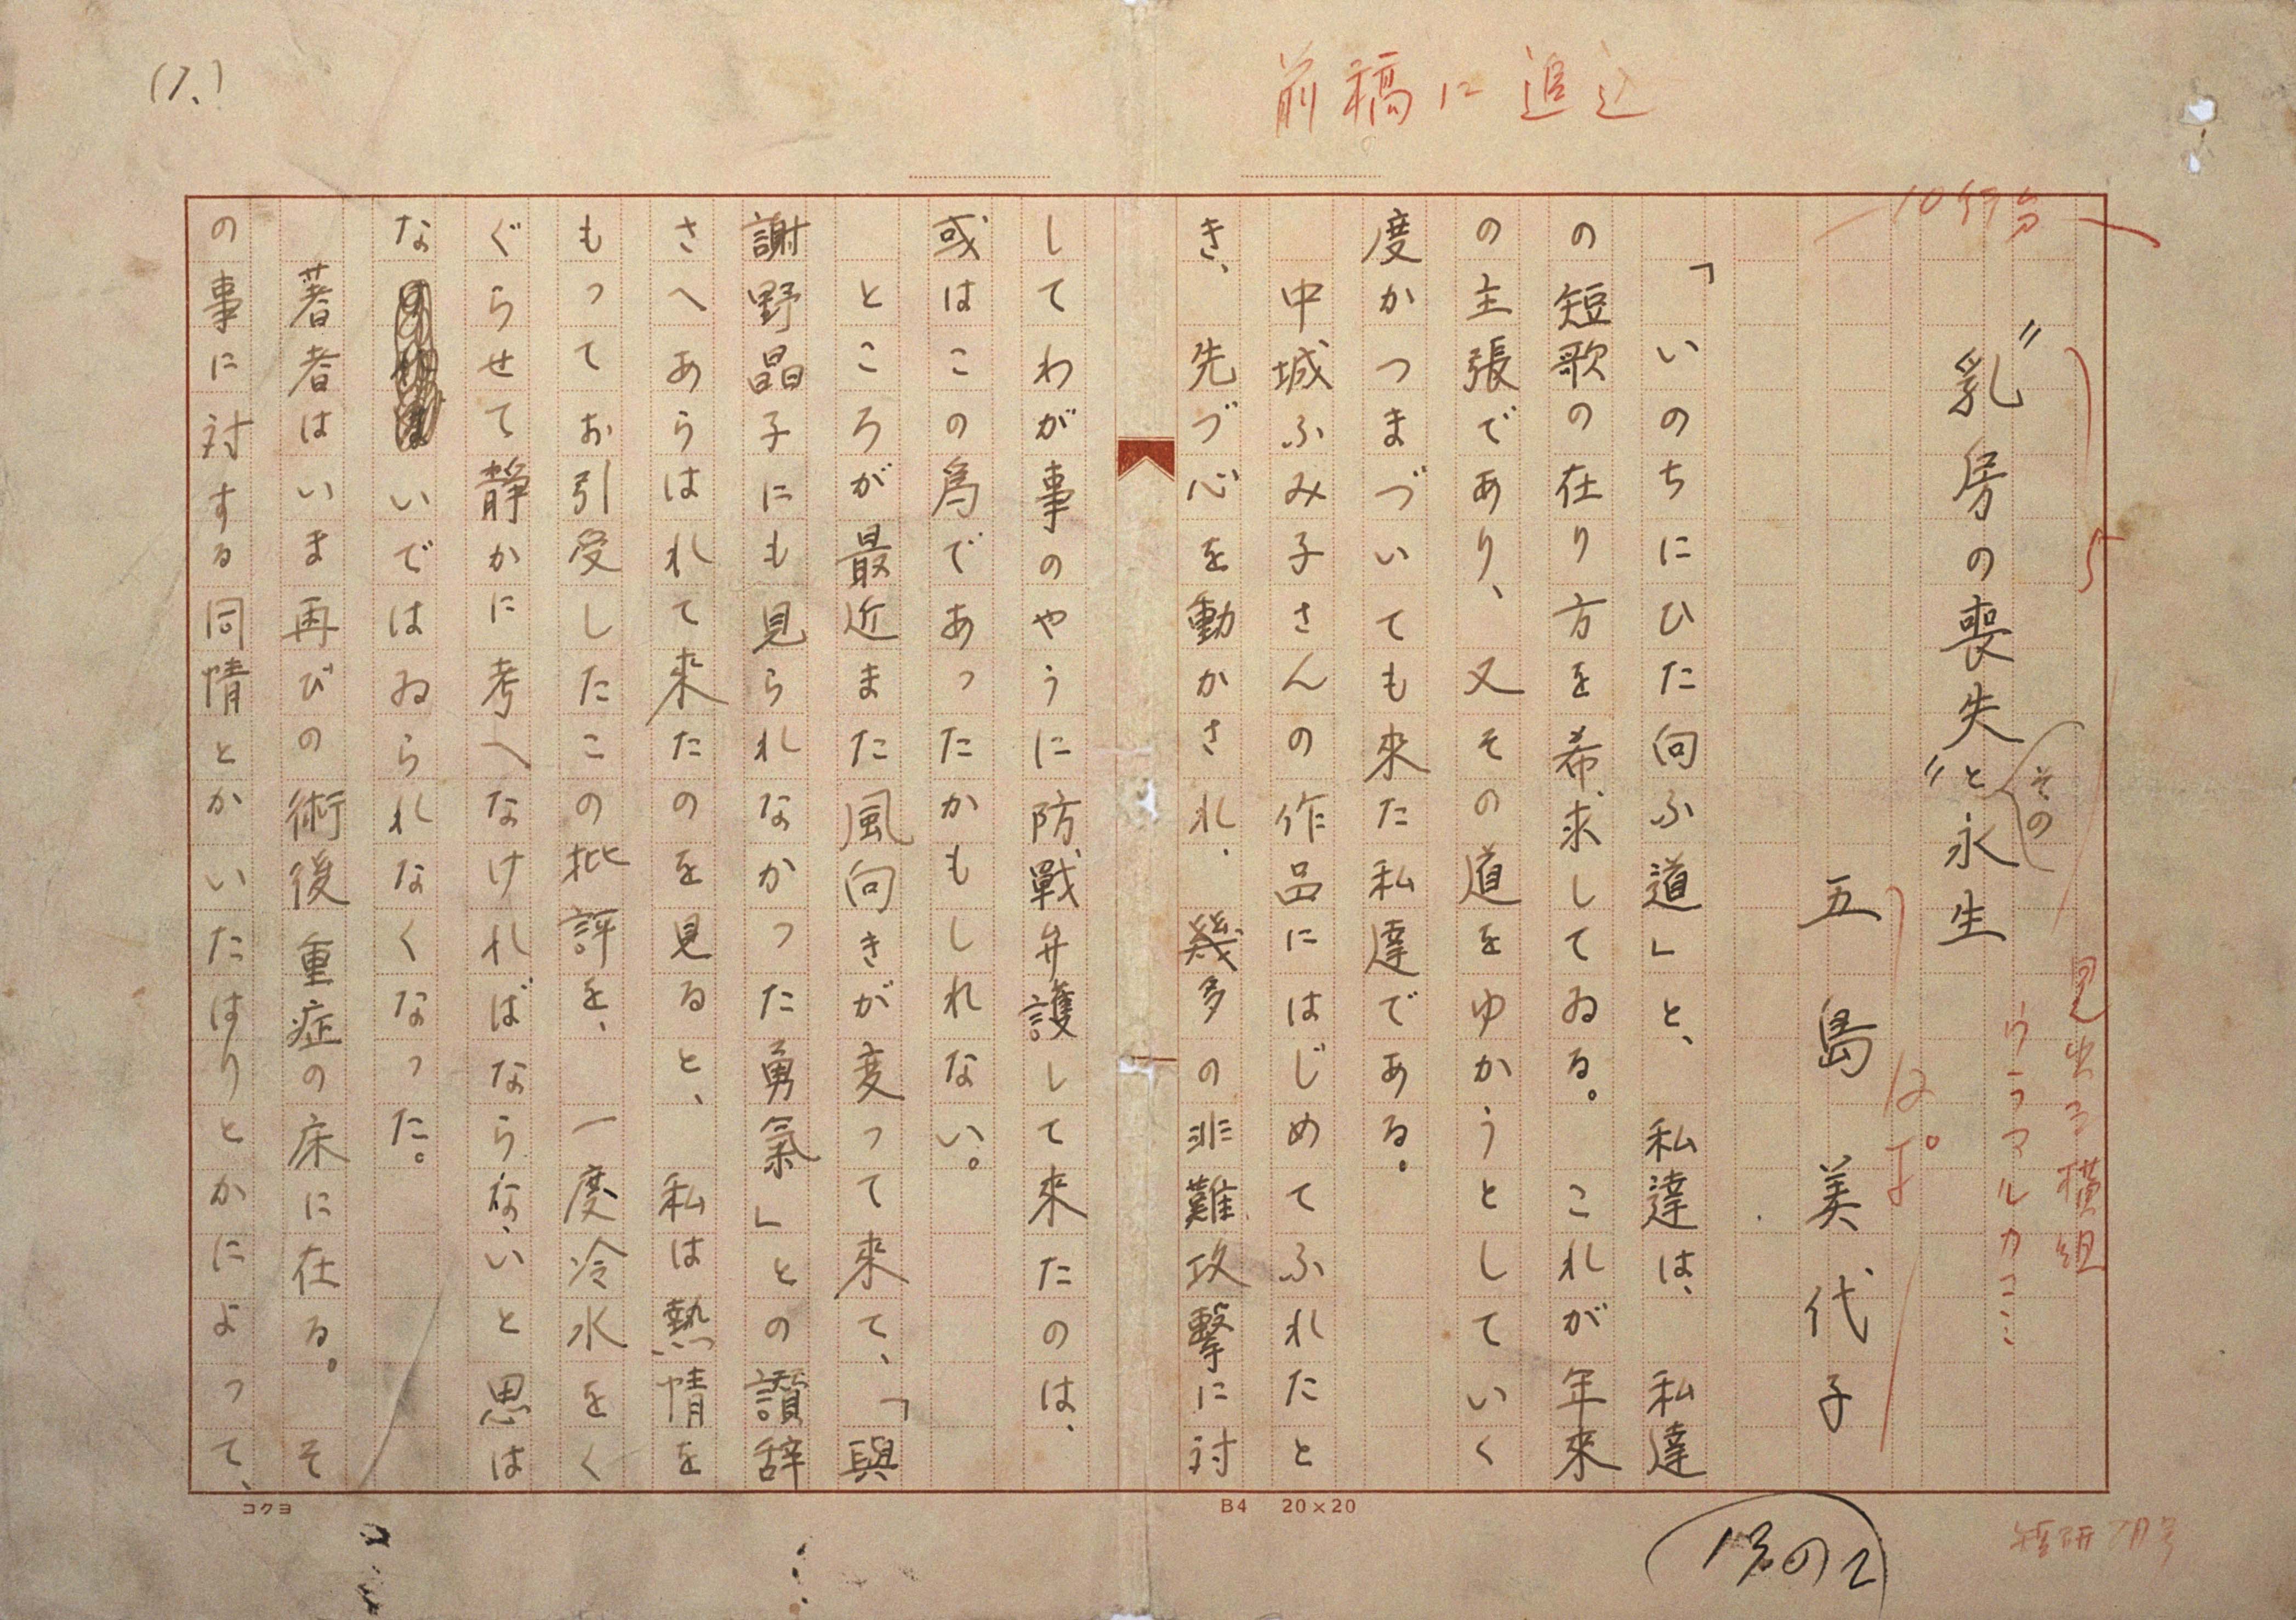 (1.)
前稿に追込
10行分
見出る横組
ウラマルカコミ
〃乳房の喪失〃と永生
その
五島美代子
「いのちにひた向ふ道」と、私達は、私達
の短歌の在り方を希求してゐる。これが年來
の主張であり、又その道をゆかうとしていく
度かつまづいても来た私達である。
中城ふみ子さんの作品にはじめてふれたと
き、先づ心を動かされ、幾多の非難攻撃に対
してわが事のやうに防戰弁護して來たのは、
或はこの為であったかもしれない。
ところが最近また風向きが変って来て、「與
謝野晶子にも見られなかつた勇氣」との讃辞
さへあらはれて来たのを見ると、私は熱情を
もってお引受したこの批評を、一度冷水をく
ぐらせて静かに考へなければならないと思は
ないではゐられなくなった。
著者はいま再びの術後重症の床に在る。そ
の事に対する同情とかいたはりとかによって、
コクヨ
B4 20×20
短研7月号